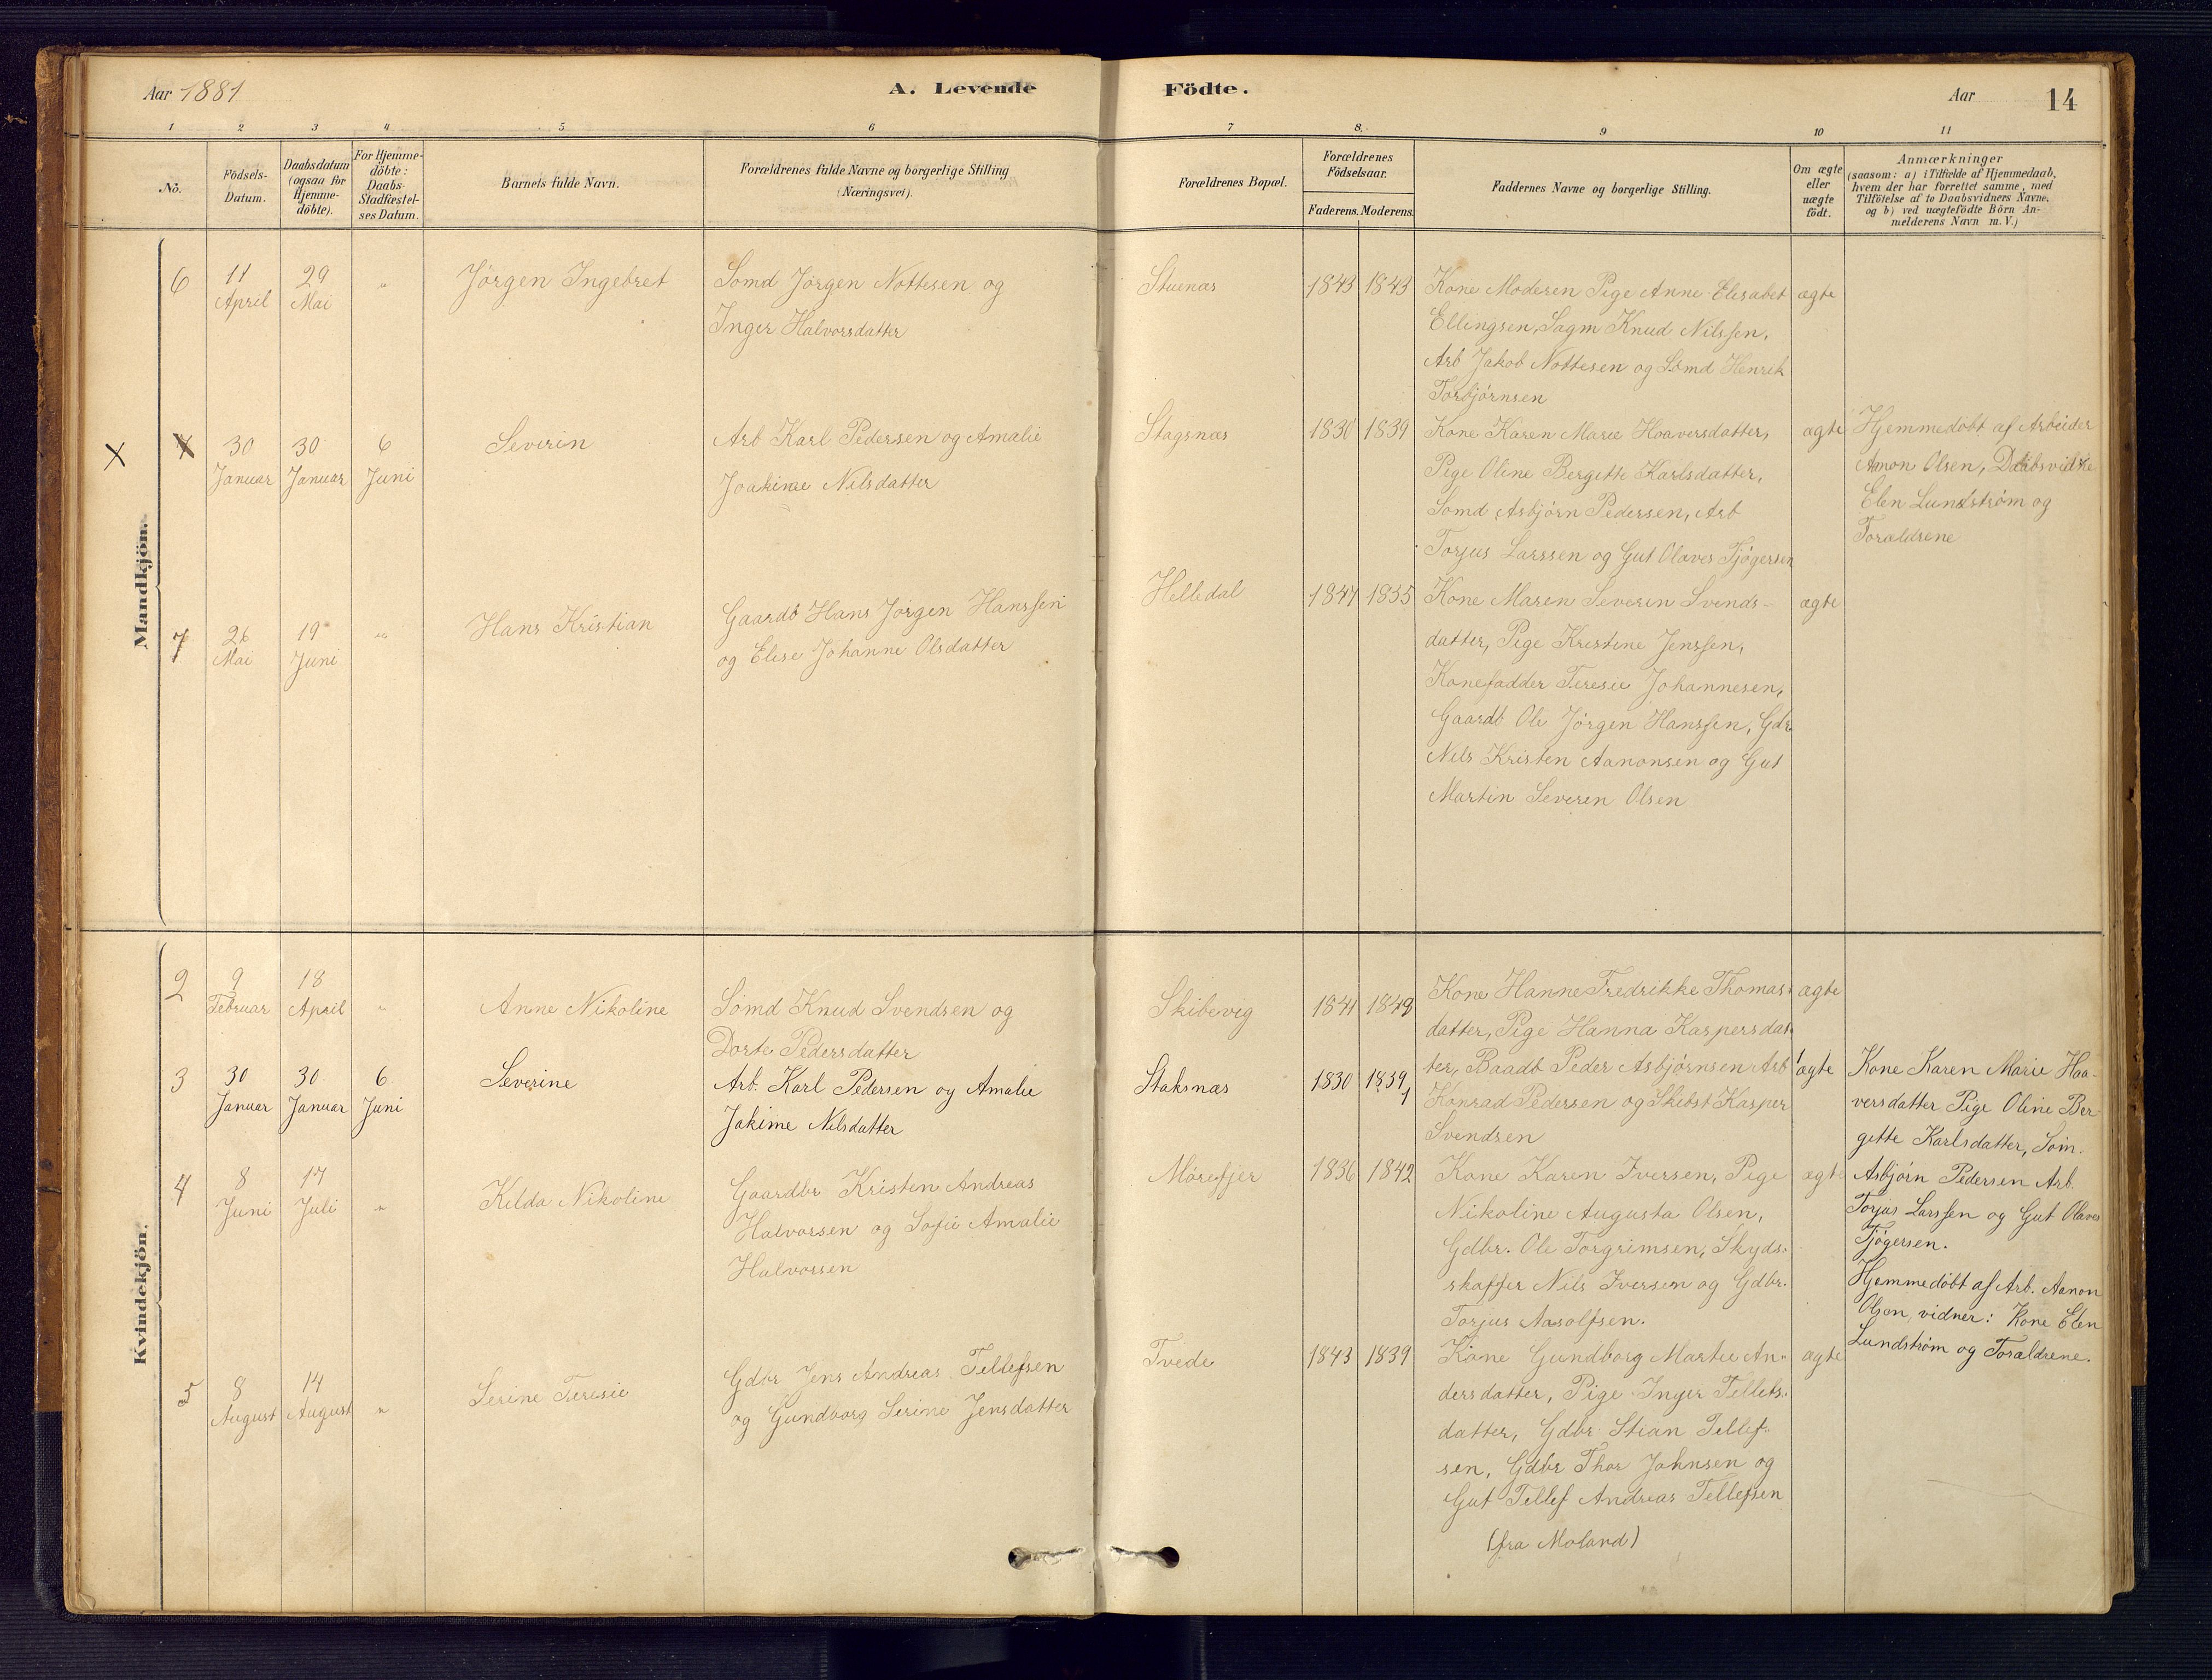 Aar 1881
A. Levende Födte.
Aar
14
1 2 3 4 5 6 7 8. 9 10 11
No.
Födsels-
Datum.
Daabsdatum
(ogsaa for
Hjemme-
döbte).
For Hjemme-
döbte:
Daabs-
Stadfæstel-
ses Datum.
Barnets fulde Navn.
Forældrenes fulde Navne og borgerlige Stilling
(Næringsvei).
Forældrenes Bopæl.
Forældrenes
Födselsaar.
Faderens. Moderens.
Faddernes Navne og borgerlige Stilling.
Om ægte
eller
uægte
födt.
Anmærkninger
(saasom: a) i Tilfælde af Hjemmedaab,
hvem der har forrettet samme, med
Tilföielse af to Daabsvidners Navne,
og b) ved uægtefödte Börn An-
melderens Navn m. V.)
Mandkjön.
6
11
April
29
Mai
"
Jörgen Ingebret
Sømd Jörgen Nottesen og
Inger Halvorsdatter
Stuenæs
1843 1843
Kone Moderen Pige Anne Elisabet
Ellingsen, Sagm Knud Nilssen,
Arb Jakob Nottesen og Sømd Henrik
Torbjörnsen
ægte
X
X
30
Januar
30
Januar
6
Juni
Severin
Arb Karl Pedersen og Amalie
Joakime Nilsdatter
Stagsnæs
1830 1839
Kone Karen Marie Hoaversdatter,
Pige Oline Bergitte Karlsdatter,
Sømd Asbjörn Pedersen, Arb
Torjus Larssen og Gut Olaves Tjögersen
ægte
Hjemmedöbt af Arbeider
Amon Olsen, Daabsvidne
Elen Lundström og
Forældrene
7
26
Mai
19
Juni
"
Hans Kristian
Gaardb Hans Jörgen Hanssen
og Elise Johanne Olsdatter
Helledal
1847 1855
Kone Maren Severin Svends-
datter, Pige Kristine Jenssen,
Konefadder Teresie Johannesen,
Gaardb Ole Jörgen Hanssen, Gdr
Nils Kristen Aanonsen og Gut
Martin Severen Olsen
ægte
Kvindekjön.
2
9
Februar
18
April
"
Anne Nikoline
Sömd Knud Svendsen og
Dorte Pedersdatter
Skibevig
1841 1848
Kone Hanne Fredrikke Thomas-
datter, Pige Hanna Kaspersdat-
ter, Baadb Peder Asbjörnsen Arb
Konrad Pedersen og Skibst Kasper
Svendsen
ægte
3
30
Januar
30
Januar
6
Juni
Severine
Arb. Karl Pedersen og Amalie
Jakime Nilsdatter
Staksnæs
1830 1839
ægte
Kone Karen Marie Haa-
versdatter Pige Oline Ber-
gette Karlsdatter, Söm.
Asbjörn Pedersen Arb.
Torjus Larssen og Gut Olaves
Tjögersen.
Hjemmedöbt af Arb. Aanon
Olsen, vidner: Kone Elen
Lundström og Forældrene.
4
8
Juni
17
Juli
"
Kilda Nikoline
Gaardbr Kristen Andreas
Halvorsen og Sofie Amalie
Halvorsen
Mörefjer
1836 1842
Kone Karen Iversen, Pige
Nikoline Augusta Olsen,
Gdbr. Ole Torgrimsen, Skyds-
skaffer Nils Iversen og Gdbr.
Torjus Aasolfsen.
ægte
5
8
August
14
August
"
Serine Teresie
Gdbr Jens Andreas Tellefsen
og Gundborg Serine Jensdatter
Tvede
1843 1839
Kone Gundborg Martie An-
dersdatter, Pige Inger Tellefs-
datter, Gdbr Stian Tellef-
sen, Gdbr Thor Johnsen og
Gut Tellef Andreas Tellefsen
(fra Moland)
ægte